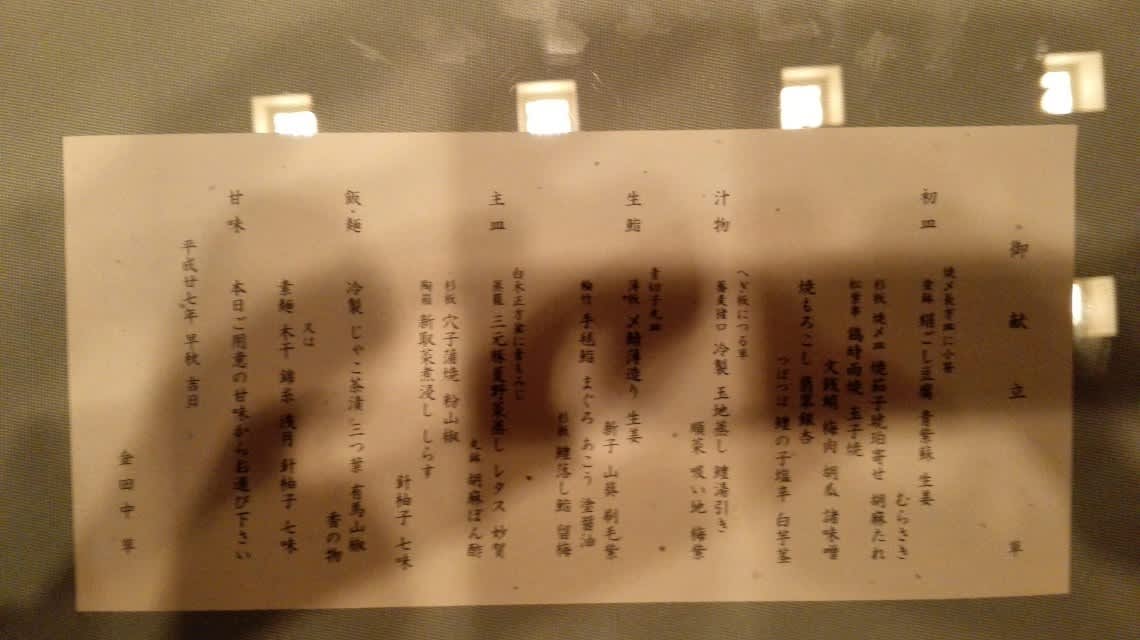 御献立 草
初皿
焼〆長方皿に小笹
塗鉢 絹ごし豆腐 青紫蘇 生姜
むらさき
杉板 焼〆皿 焼茄子琥珀寄せ 胡麻たれ
松葉串 鶏時雨焼 玉子焼
文銭蛸 梅肉 胡瓜 諸味噌
焼もろこし 翡翠銀杏
つぼつぼ 鱧の子塩辛 白芋茎
汁物
へぎ板につる草
蕎麦猪口 冷製 玉地蒸し 鱧湯引き
順菜 吸い地 梅紫
生鮨
青切子丸皿
薄板 〆鯖薄造り 生姜
新子 山葵 剃毛紫
輪竹 手毬鮨 まぐろ あこう 塗醤油
杉板 鱧落し鮨 留梅
主皿
白木正方盆に青もみじ
蒸籠 三元豚夏野菜蒸し レタス 妙賀
丸鉢 胡麻ぽん酢
杉板 穴子蒲焼 粉山椒
陶箱 新取菜煮浸し しらす
針柚子 七味
飯・麺
冷製 じゃこ茶漬 三つ葉 有馬山椒
香の物
又は
素麺 木干 錦糸 浅月 針柚子 七味
甘味
本日ご用意の甘味からお選び下さい
平成廿七年 早秋 吉日
金田中 草